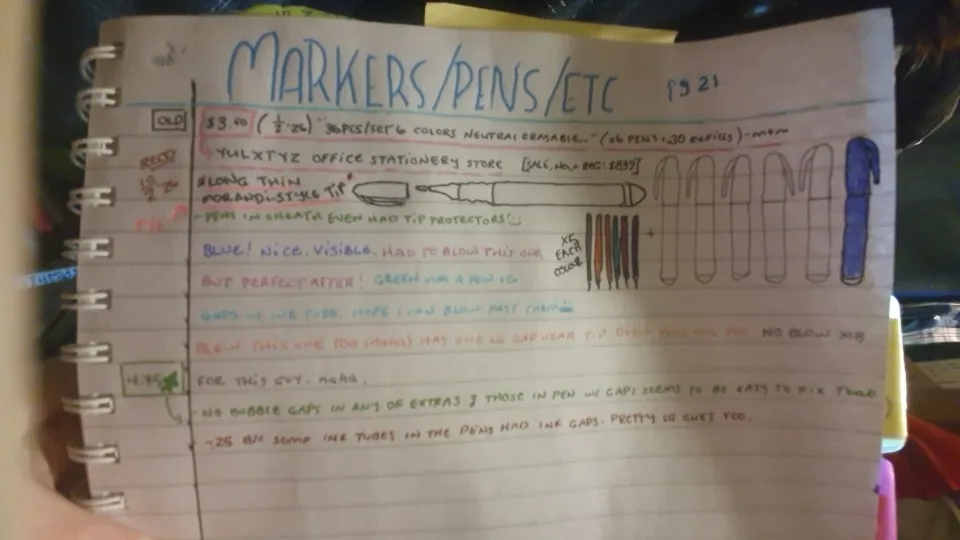 MARKERS/PENS/ETC pg 21
OLD $3.40 (1/2·26) "36PCS/SET 6 COLORS NEUTRAL ERASABLE.." (x6 PENS + 30 REFILLS)
YULXTYZ OFFICE STATIONERY STORE [SALE, NOW REG:
RECD *LONG THIN
MORANDI-STYLE TIP*
- PENS IN SHEATH EVEN HAD TIP PROTECTORS!
X5
EACH
COLOR
+
BLUE! NICE. VISIBLE. HAD TO BLOW THIS ONE,
BUT PERFECT AFTER! GREEN HAS A FEW LG
GAPS IN INK TUBE. HOPE I CAN BLOW PAST THEM
BLEW THIS ONE TOO HAS ONE LG GAP NEAR TIP. THIS ONE TOO. NO BLOW JOBS
4.75 FOR THIS GUY. HAHA.
- NO BUBBLE GAPS IN ANY OF EXTRAS & THOSE IN PEN W/ GAPS SEEMS TO BE EASY TO FIX
-.25 B/C SOME INK TUBES IN THE PENS HAD INK GAPS. PRETTY LG ONES TOO.